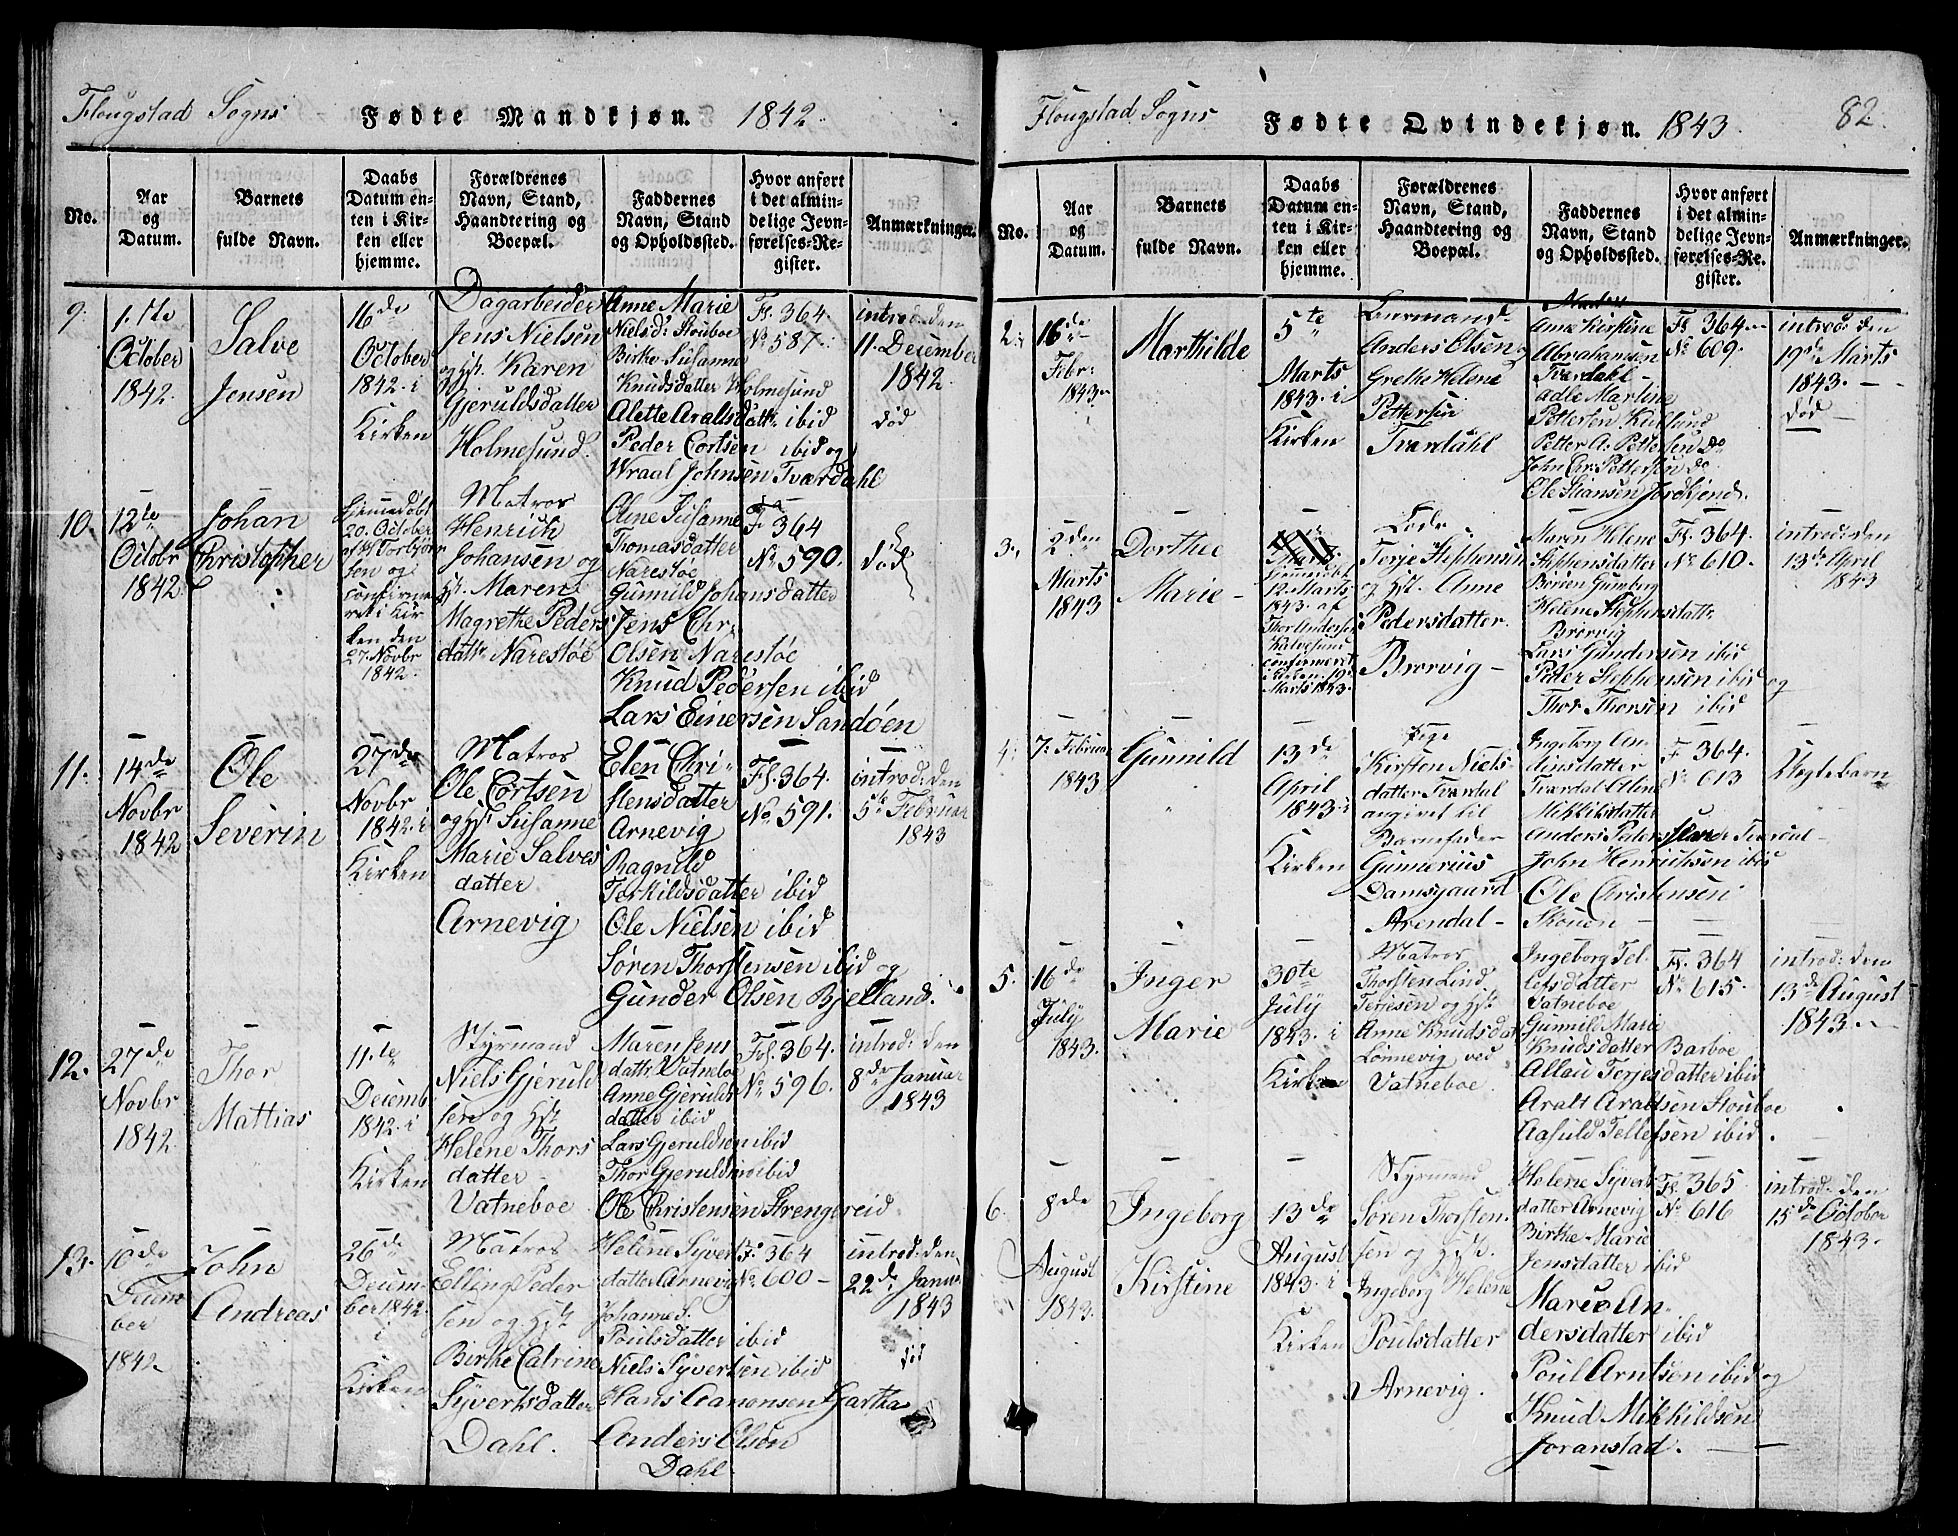 Flougstad Sogns Fødte Mandkjøn. 1842.
No.
Aar
og
Datum.
Barnets
fulde Navn.
Daabs
Datum en-
ten i Kir-
ken eller
hjemme.
Forældrenes
Navn, Stand,
Haandtering og
Boepæl.
Faddernes
Navn, Stand
og Opholdssted.
Hvor anført
i det almin-
delige Jevn-
førelses-Re-
gister.
Anmærkninger.
9.
1.ste
October
1842.
Salve
Jensen
16de
October
1842. i
Kirken
Dagarbeider
Jens Nielsen
og Hst. Karen
Gjeruldsdatter
Holmesund.
Anne Marie
Nielsd: Stouboe
Birke Susanne
Knudsdatter Holmesund
Alette Araltsdattr ibid
Peder Cortsen ibid og
Wraal Johnsen Tværdahl
Fl. 364.
No 587.
introd: den
11. December
1842.
død
10.
12te
Octobr
1842.
Johan
Christopher
Hjemmedøbt
20. October
af H. Torbjørn-
sen og
confirme-
ret i Kir
ken den
27. Novbr
1842.
Matros
Henrich
Johansen og
Hst. Maren
Magrethe Peders
dattr Narestøe
Oline Susanne
Thomasdatter
Narestøe
Gunnild Johansdatter
Jens Chr.
Olsen Narestøe
Knud Pedersen ibid
Lars Einersen Sandøen
Fl 364
No 590.
død
11.
14de
Novbr
1842
Ole
Severin
27de
Novbr
1842. i
Kirken
Matros
Ole Cortsen
og Hst Susanne
Marie Salves
datter
Arnevig
Elen Chri-
stensdatter
Arnevig
Ragnild
Terkildsdatter ibid
Ole Nielsen ibid
Søren Thorstensen ibid og
Gunder Olsen Bjelland.
Fl. 364.
No 591.
introd: den
5te Februar
1843
12.
27de
Novbr
1842.
Thor
Mattias
11.te
Decemb
1842. i
Kirken
Styrmand
Niels Gjeruld
sen og Hst
Helene Thors
datter
Vatneboe
Maren Jens
dattr Vatneboe
Anne Gjerulds
datter ibid
Lars Gjeruldsen ibid
Thor Gjeruldsen ibid
Ole Christensen Strengereid
Fl. 364.
No 596.
introd: den
8de Januar
1843
13.
10de
Decem
ber
1842.
John
Andreas
26de
Decem-
ber 1842.
i
Kirken
Matros
Elling Peder
sen og Hst
Birthe Catrine
Syvertsdatter
Dahl.
Helene Syverts
datter Arnevig
Johanne
Poulsdatter ibid
Niels Syvertsen ibid
Hans Aanonsen Gjartha
Anders Olsen
Dahl.
Fl 364
No 600
introd: den
22de Januar
1843
død
Flougstad Sogns Fødte Qvindekjøn. 1843. 82.
No.
Aar
og
Datum.
Barnets
fulde Navn.
Daabs
Datum en-
ten i Kir-
ken eller
hjemme.
Forældrenes
Navn, Stand,
Haandtering og
Boepæl.
Faddernes
Navn, Stand
og Opholdssted.
Hvor anført
i det almin-
delige Jevn-
førelses-Re-
gister.
Anmærkninger.
2.
16de
Febr:
1843
Marthilde
5te
Marts
1843. i
Kirken
Anders Olsen og
Grethe Helene
Pettersen
Tværdahl
Anne Kirstine
Abrahamsen
Tværdahl
Adle Martine
Pettersen
Petter A: Pettersen do
John Chr: Pettersen do
Ole Stiansen
Fl 364
No 609.
introd: den
19de Marts
1843.
død
3.
2den
Marts
1843
Dorthe
Marie
Hjemmedøbt
12. Marts
1843. af
Thor Andersen
Kalvesund
confirmeret
i Kirken 19.
Marts 1843.
Terje Stephensen
og Hst. Anne
Pedersdatter
Brørvig
Maren Helene
Stephensdatter
Helene Stephensdattr
Brørvig
Lars Gundersen ibid
Peder Stephensen ibid og
Thor Thorsen ibid
Fl. 364.
No 610.
introd: den
13de April
1843
4.
7. Februar
1843
Gunnild
13de
April
1843. i
Kirken
Pige
Kirsten Niels-
datter Tværdal
angivet til
Barnefader
Gunnerius
Damsgaard
Arendal
Ingeborg An-
Tværdal
Mikkelsdatter
Anders
John Henrichsen ibid
Ole Christensen
Fl 364.
No 613
Uægtebarn
5.
16de
July
1843.
Inger
Marie
30te
July
1843. i
Kirken
Matros
Thorsten Lind
Terjesen og Hst
Anne Knudsdatr
Lønnevig ved
Vatneboe.
Ingeborg Tel-
lefsdatter
Vatneboe
Gunnild Marie
Knudsdatter Barboe
Allau Terjesdatter ibid
Aralt Araltsen Stouboe
Aasuld Tellefsen ibid.
Fl. 364
No 615.
introd: den
13de August
1843.
6.
8de
August
1843.
Ingeborg
Kirstine
13de
August
1843. i
Kirken
Styrmand
Søren Thorsten-
sen og Hst.
Ingeborg Helene
Poulsdatter
Arnevig.
Helene Syverts
datter Arnevig
Birthe Marie
Jensdatter ibid
Maria An-
dersdatter ibid
Poul Arntsen ibid og
Knud Mikkildsen
Joranstad.
Fl. 365
No 616
introd: den
15de October
1843.